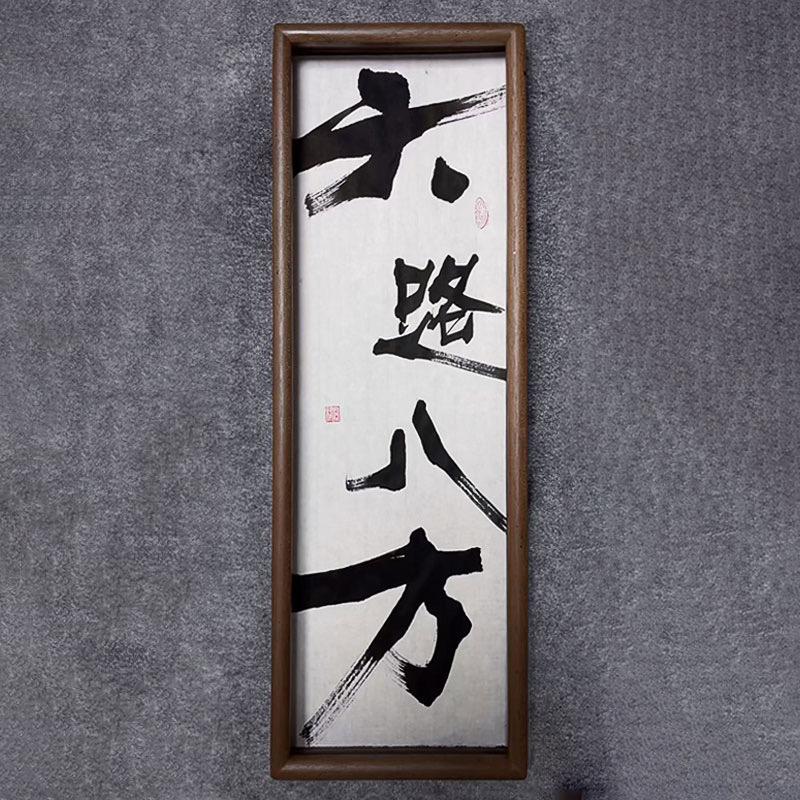 六路八方